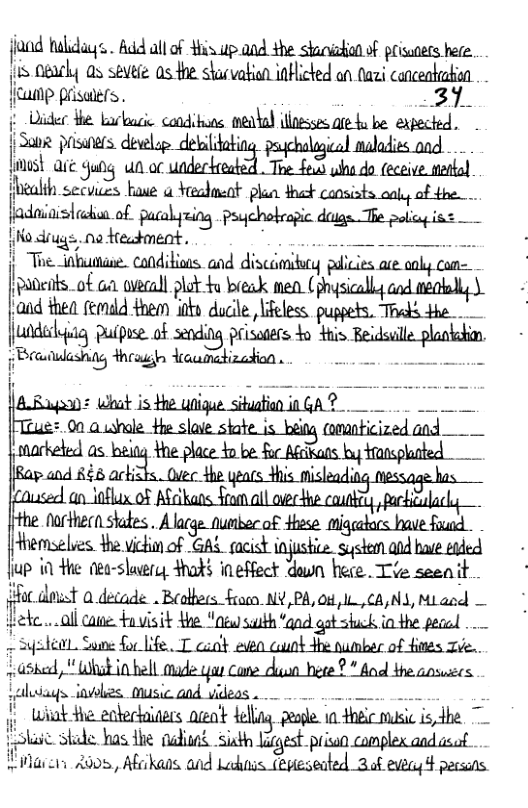 and holidays. Add all of this up and the starvation of prisoners here
is nearly as severe as the starvation inflicted on nazi concentration
camp prisoners.
34
Under the barbaric conditions mental illnesses are to be expected.
Some prisoners develop debilitating psychological maladies and
most are going un or undertreated. The few who do receive mental
health services have a treatment plan that consists only of the
administration of paralyzing psychotropic drugs. The policy is:
No drugs, no treatment.
The inhumane conditions and discrimitory policies are only com-
ponents of an overall plot to break men (physically and mentally)
and then remold them into ducile, lifeless puppets. That's the
underlying purpose of sending prisoners to this Reidsville plantation.
Brainwashing through traumatization.
A. Bryson: What is the unique situation in GA?
True: On a whole the slave state is being romanticized and
marketed as being the place to be for Afrikans by transplanted
Rap and R&B artists. Over the years this misleading message has
caused an influx of Afrikans from all over the country, particularly
the northern states. A large number of these migrators have found
themselves the victim of GA's racist injustice system and have ended
up in the neo-slavery that's in effect down here. I've seen it
for almost a decade. Brothers from NY, PA, OH, IL, CA, NJ, MI and
etc... all came to visit the "new south" and got stuck in the penal
system. Some for life. I can't even count the number of times I've
asked, "What in hell made you come down here?" And the answers
always involves music and videos.
What the entertainers aren't telling people in their music is, the
slave state has the nation's sixth largest prison complex and as of
march 2005, Afrikans and Latinos represented 3 of every 4 persons